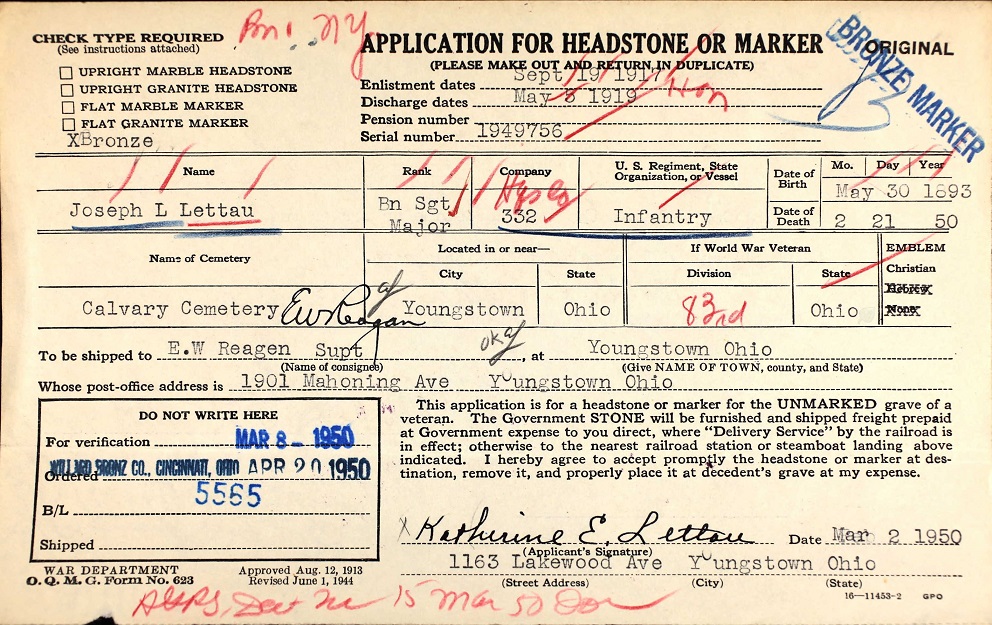 CHECK TYPE REQUIRED
(See instructions attached)
UPRIGHT MARBLE HEADSTONE
UPRIGHT GRANITE HEADSTONE
FLAT MARBLE MARKER
FLAT GRANITE MARKER
XBronze
APPLICATION FOR HEADSTONE OR MARKER
(PLEASE MAKE OUT AND RETURN IN DUPLICATE)
ORIGINAL
BRONZE MARKER
Enlistment dates Sept 19 1917
Discharge dates May 3 1919 Hon
Pension number
Serial number 1949756
Name
Joseph L Lettau
Rank
Bn Sgt
Major
Company
Hq Co
332
U. S. Regiment, State Organization, or Vessel
Infantry
Date of Birth
Mo. Day Year
May 30 1893
Date of Death
2 21 50
Name of Cemetery
Calvary Cemetery EW Reagan
Located in or near—
City
Youngstown
State
Ohio
If World War Veteran
Division
83rd
State
Ohio
EMBLEM
Christian
Hebrew
None
To be shipped to E.W Reagen Supt, at Youngstown Ohio
(Name of consignee)
(Give NAME OF TOWN, county, and State)
Whose post-office address is 1901 Mahoning Ave Youngstown Ohio
DO NOT WRITE HERE
For verification MAR 8 - 1950
Ordered WILLARD BRONZ CO., CINCINNATI, OHIO APR 20 1950
5565
B/L
Shipped
This application is for a headstone or marker for the UNMARKED grave of a
veteran. The Government STONE will be furnished and shipped freight prepaid
at Government expense to you direct, where "Delivery Service" by the railroad is
in effect; otherwise to the nearest railroad station or steamboat landing above
indicated. I hereby agree to accept promptly the headstone or marker at des-
tination, remove it, and properly place it at decedent's grave at my expense.
X Katherine E. Lettau Date Mar 2 1950
(Applicant's Signature)
1163 Lakewood Ave Youngstown Ohio
(Street Address) (City) (State)
WAR DEPARTMENT
O. Q. M. G. Form No. 623
Approved Aug. 12, 1913
Revised June 1, 1944
16—11453-2 GPO
15 Mar 50